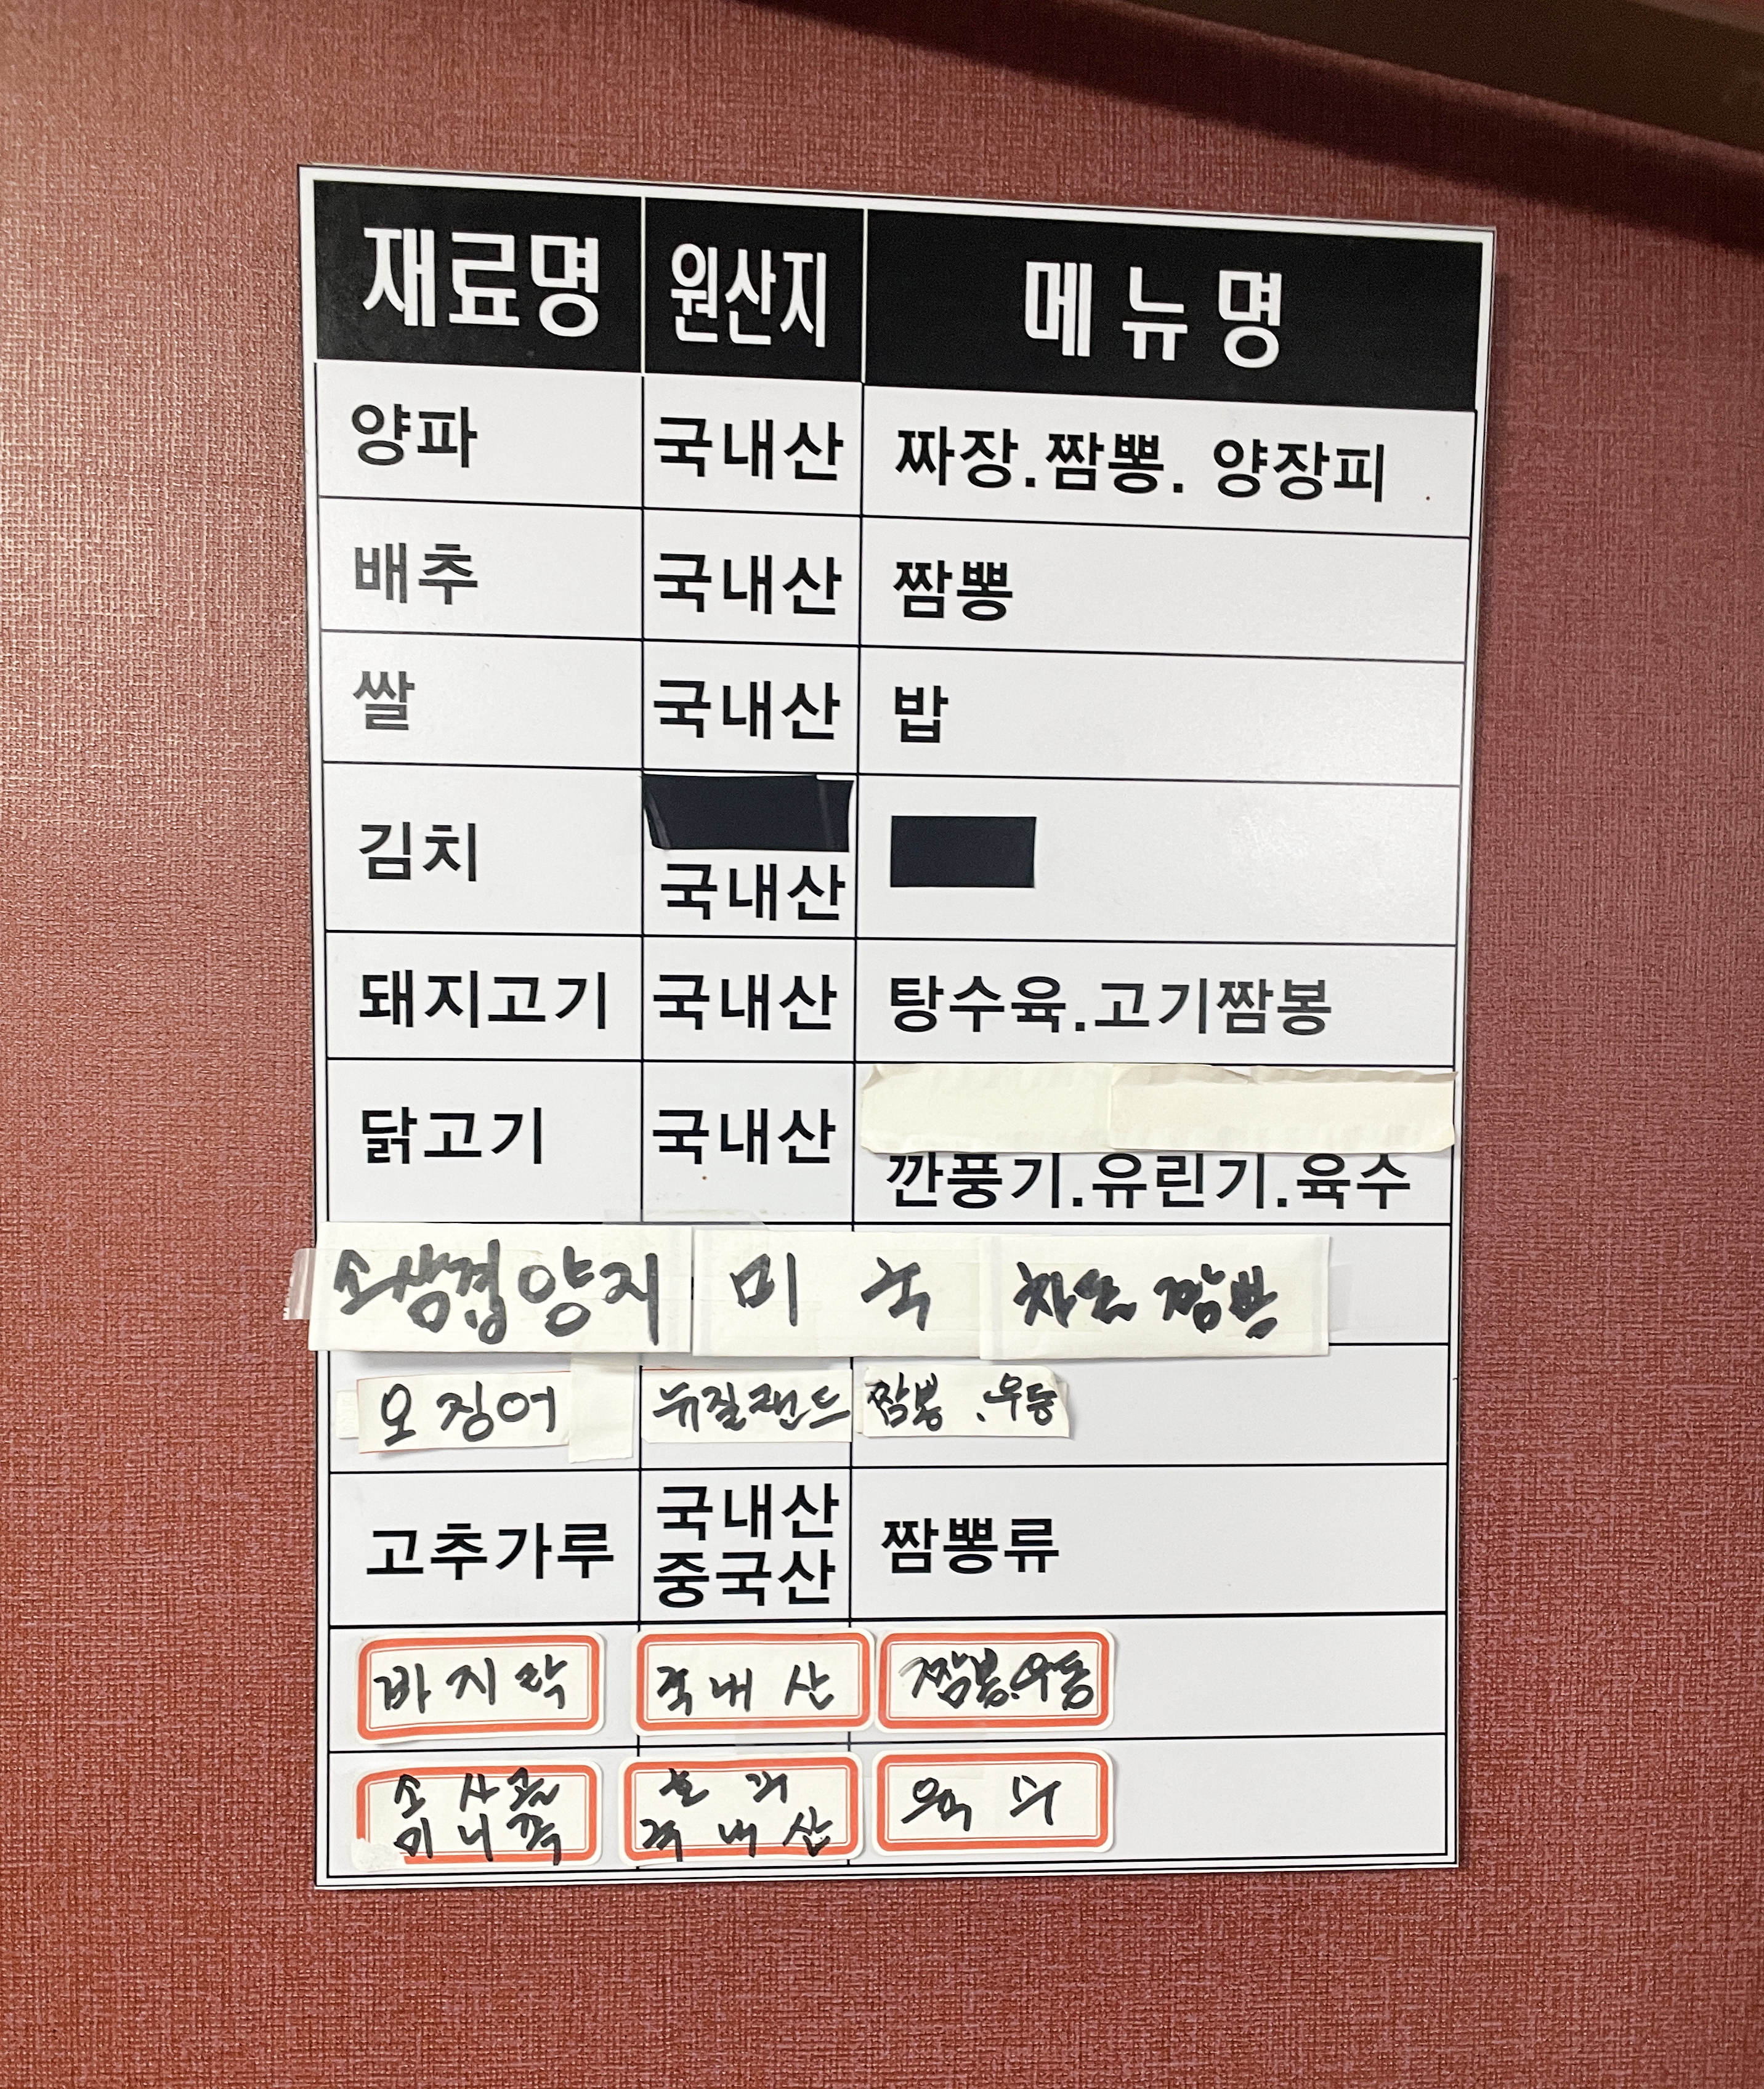 재료명 원산지 메뉴명
양파 국내산 짜장.짬뽕. 양장피
배추 국내산 짬뽕
쌀 국내산 밥
김치 국내산
돼지고기 국내산 탕수육.고기짬봉
닭고기 국내산
깐풍기.유린기.육수
소삼겹양지 미국 차돌짬뽕
오징어 뉴질랜드 짬뽕.우동
고추가루 국내산 짬뽕류
중국산
바지락 국내산 짬뽕.우동
소사골 육수
미니족 국내산